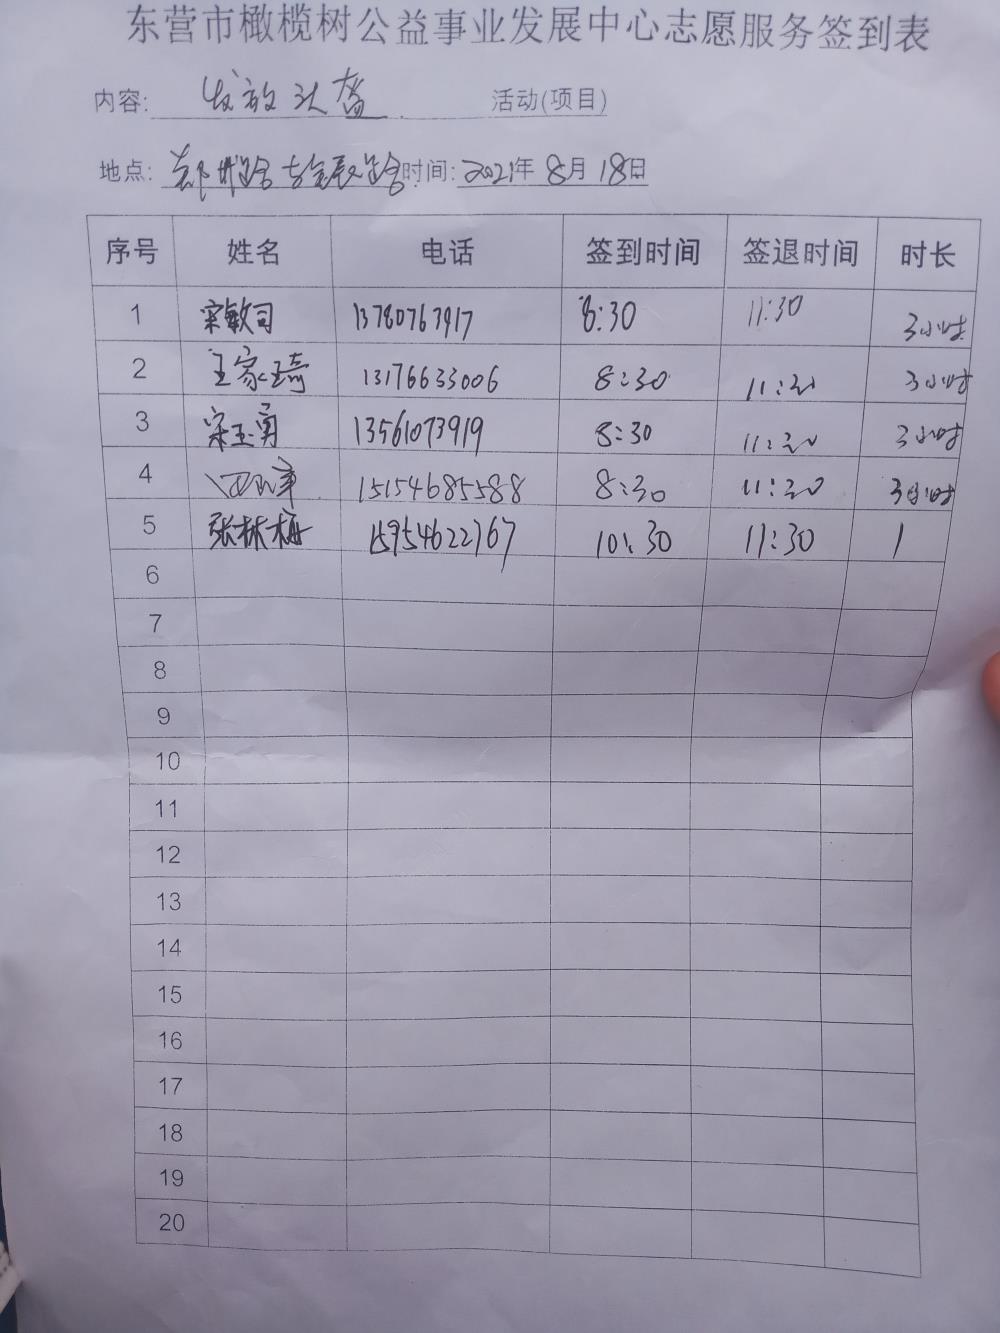 东营市橄榄树公益事业发展中心志愿服务签到表
内容: 发放头盔 活动(项目)
地点: 郑州路 时间: 2021年 8月 18日
序号 姓名 电话 签到时间 签退时间 时长
1 宋敏司 13780763917 8:30 11:30 3小时
2 王家琦 13176633006 8:30 11:30 3小时
3 宋玉勇 13561073919 8:30 11:30 3小时
4 15154685588 8:30 11:30 3小时
5 张林梅 15954622767 10:30 11:30 1
6
7
8
9
10
11
12
13
14
15
16
17
18
19
20